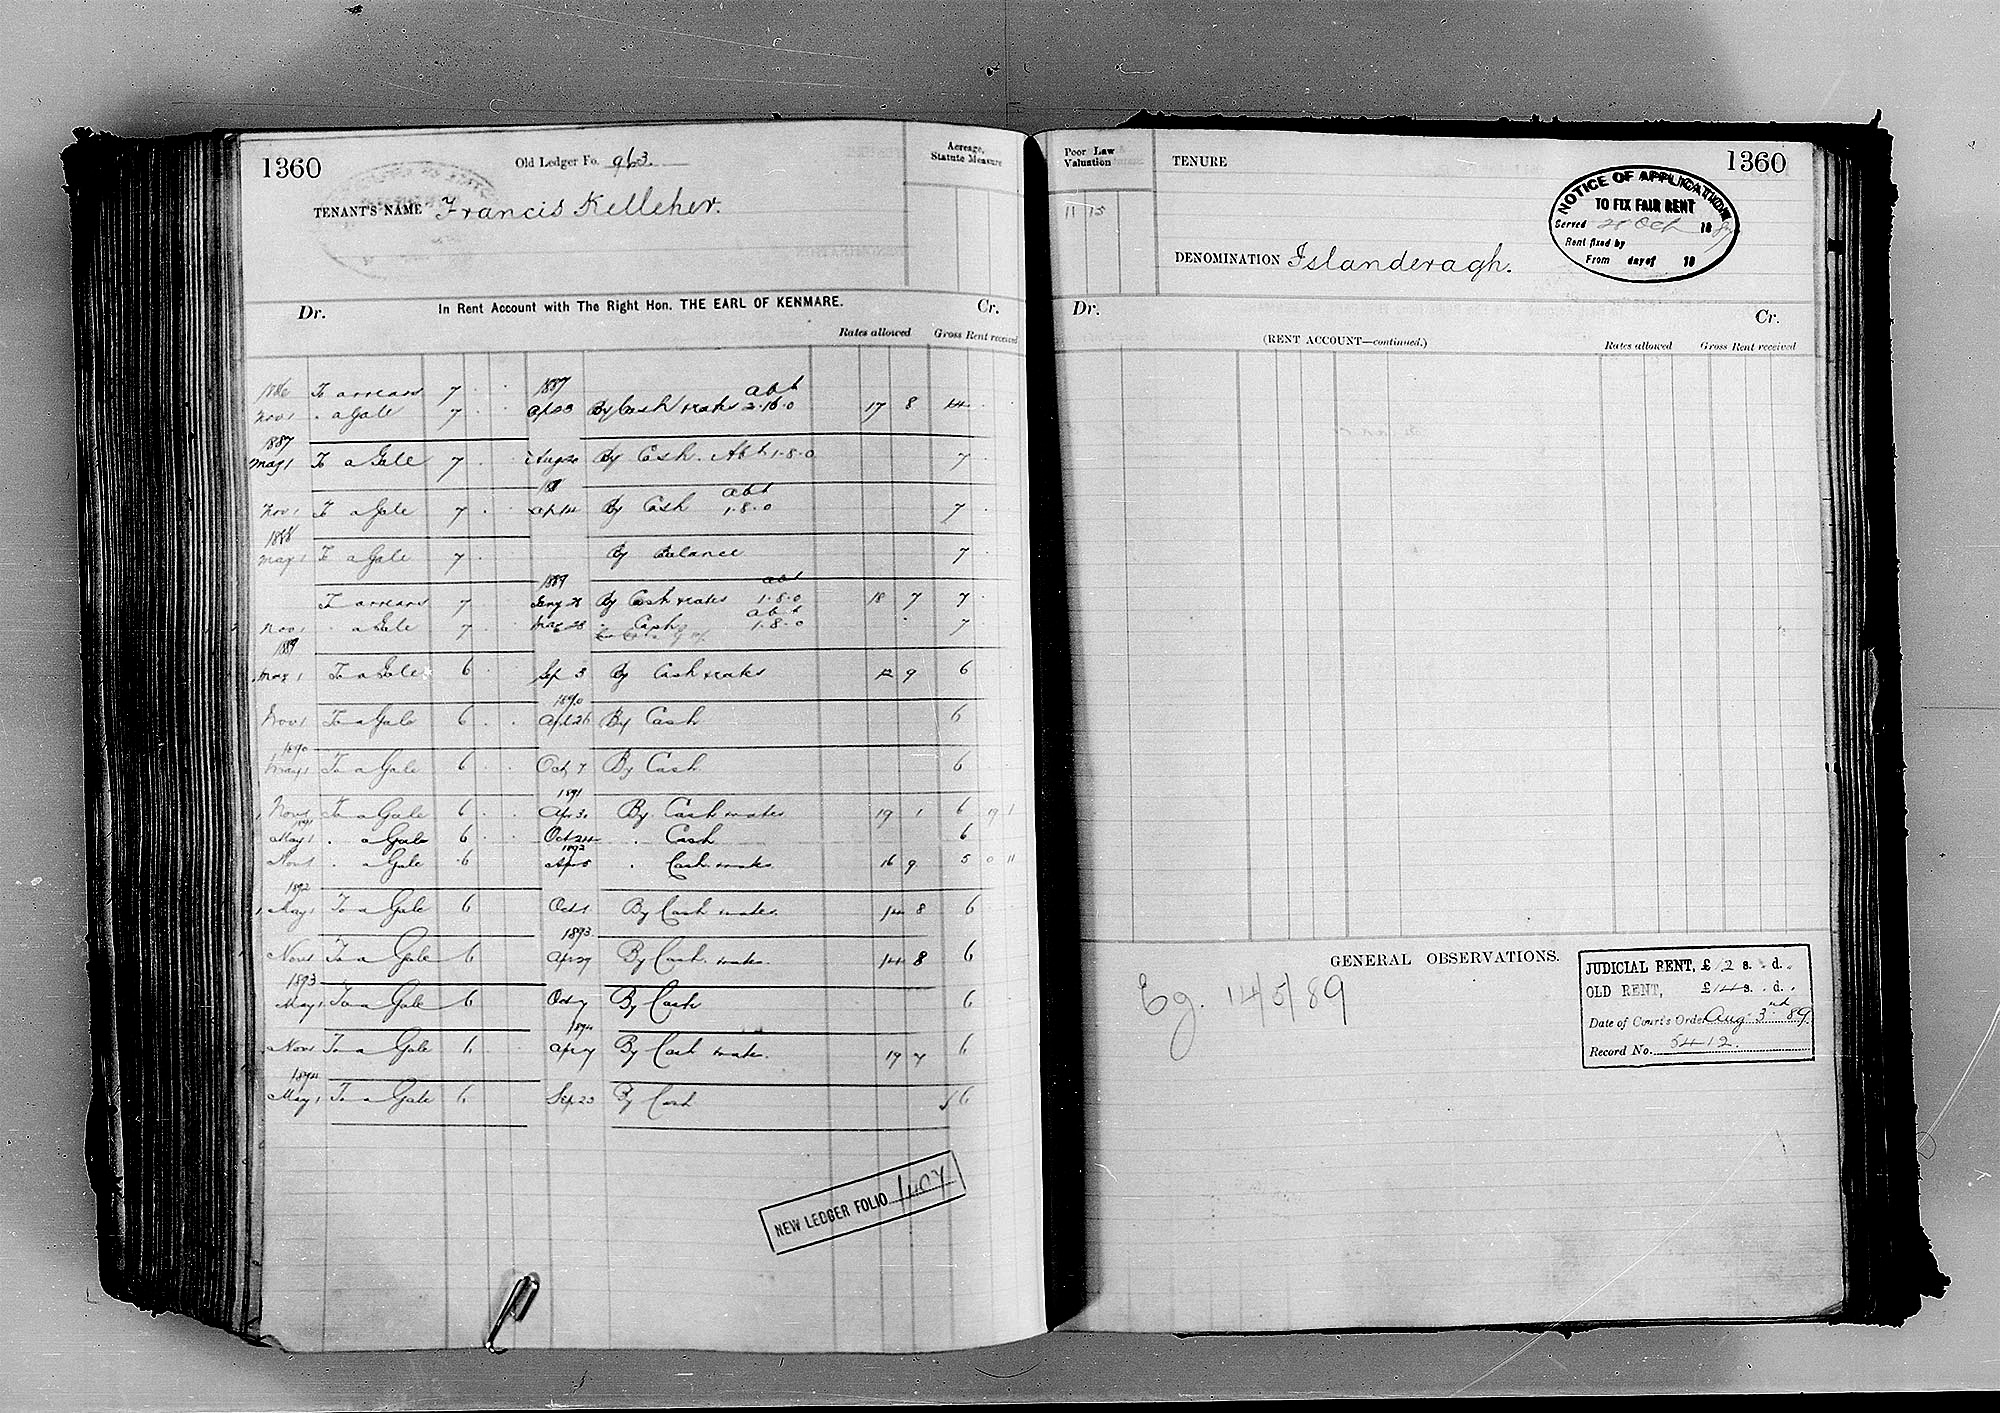 1360
Old Ledger Fo. 963.
Acreage,
Statute Measure
TENANT'S NAME Francis Kelleher.
Dr. In Rent Account with The Right Hon. THE EARL OF KENMARE. Cr.
Rates allowed Gross Rent received
1886 To arrears 7 . . 1887 abt
Nov 1 . a Gale 7 . . Ap 23 By Cash & rates 2.16.0 17 8 14 .
1887
May 1 To a Gale 7 . . Aug 20 By Cash . Abt 1.8.0 7 .
188 abt
Nov 1 To a Gale 7 . . Ap 14 By Cash 1.8.0 7 .
1888
May 1 To a Gale 7 . . By Balance 7 .
1889 abt
To arrears 7 . . Jany 28 By Cash & rates 1.8.0 18 7 7 .
abt
Nov 1 . a Gale 7 . . May 28 . Cash 1.8.0 7 .
1889
May 1 To a Gale 6 . . Sep 3 By Cash & rates 12 9 6
1890
Nov 1 To a Gale 6 . . Apl 26 By Cash 6
1890
May 1 To a Gale 6 . . Oct 7 By Cash 6
1891
Nov 1 To a Gale 6 . . Apr 30 By Cash & rates 19 1 6 19 1
1891
May 1 . a Gale 6 . . Oct 24 . Cash 6
1892
Nov 1 . a Gale 6 Apr 5 . Cash & rates 16 9 5 0 11
1892
May 1 To a Gale 6 Oct 1 By Cash & rates. 14 8 6
1893
Nov 1 To a Gale 6 Ap 29 By Cash & rates. 14 8 6
1893
May 1 To a Gale 6 Oct 7 By Cash 6
1894
Nov 1 To a Gale 6 . . Apr 7 By Cash & rates. 19 7 6
1894
May 1 To a Gale 6 . . Sep 23 By Cash 6
NEW LEDGER FOLIO 1407
Poor Law
Valuation
TENURE
1360
11 15
NOTICE OF APPLICATION
TO FIX FAIR RENT
Served 28 Oct 1887
Rent fixed by
From day of 18
DENOMINATION Islanderagh.
Dr. Cr.
(RENT ACCOUNT—continued.) Rates allowed Gross Rent received
GENERAL OBSERVATIONS.
Eg. 14/5/89
JUDICIAL RENT, £12 s. . d. .
OLD RENT, £14 s. . d. .
Date of Court's Order Aug 3rd 89
Record No. 5412.